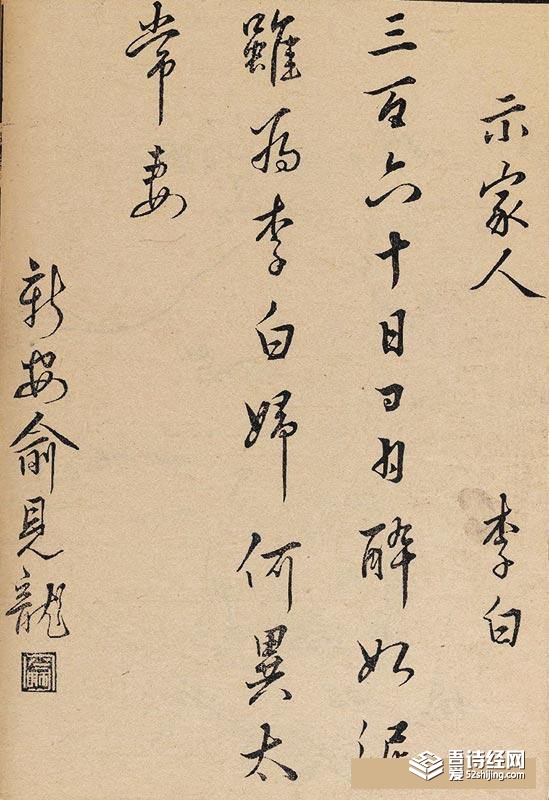 示家人
李白
三百六十日日日醉如泥
雖為李白婦何異太
常妻
新安俞見龍
吾爱诗经网
52shijing.com